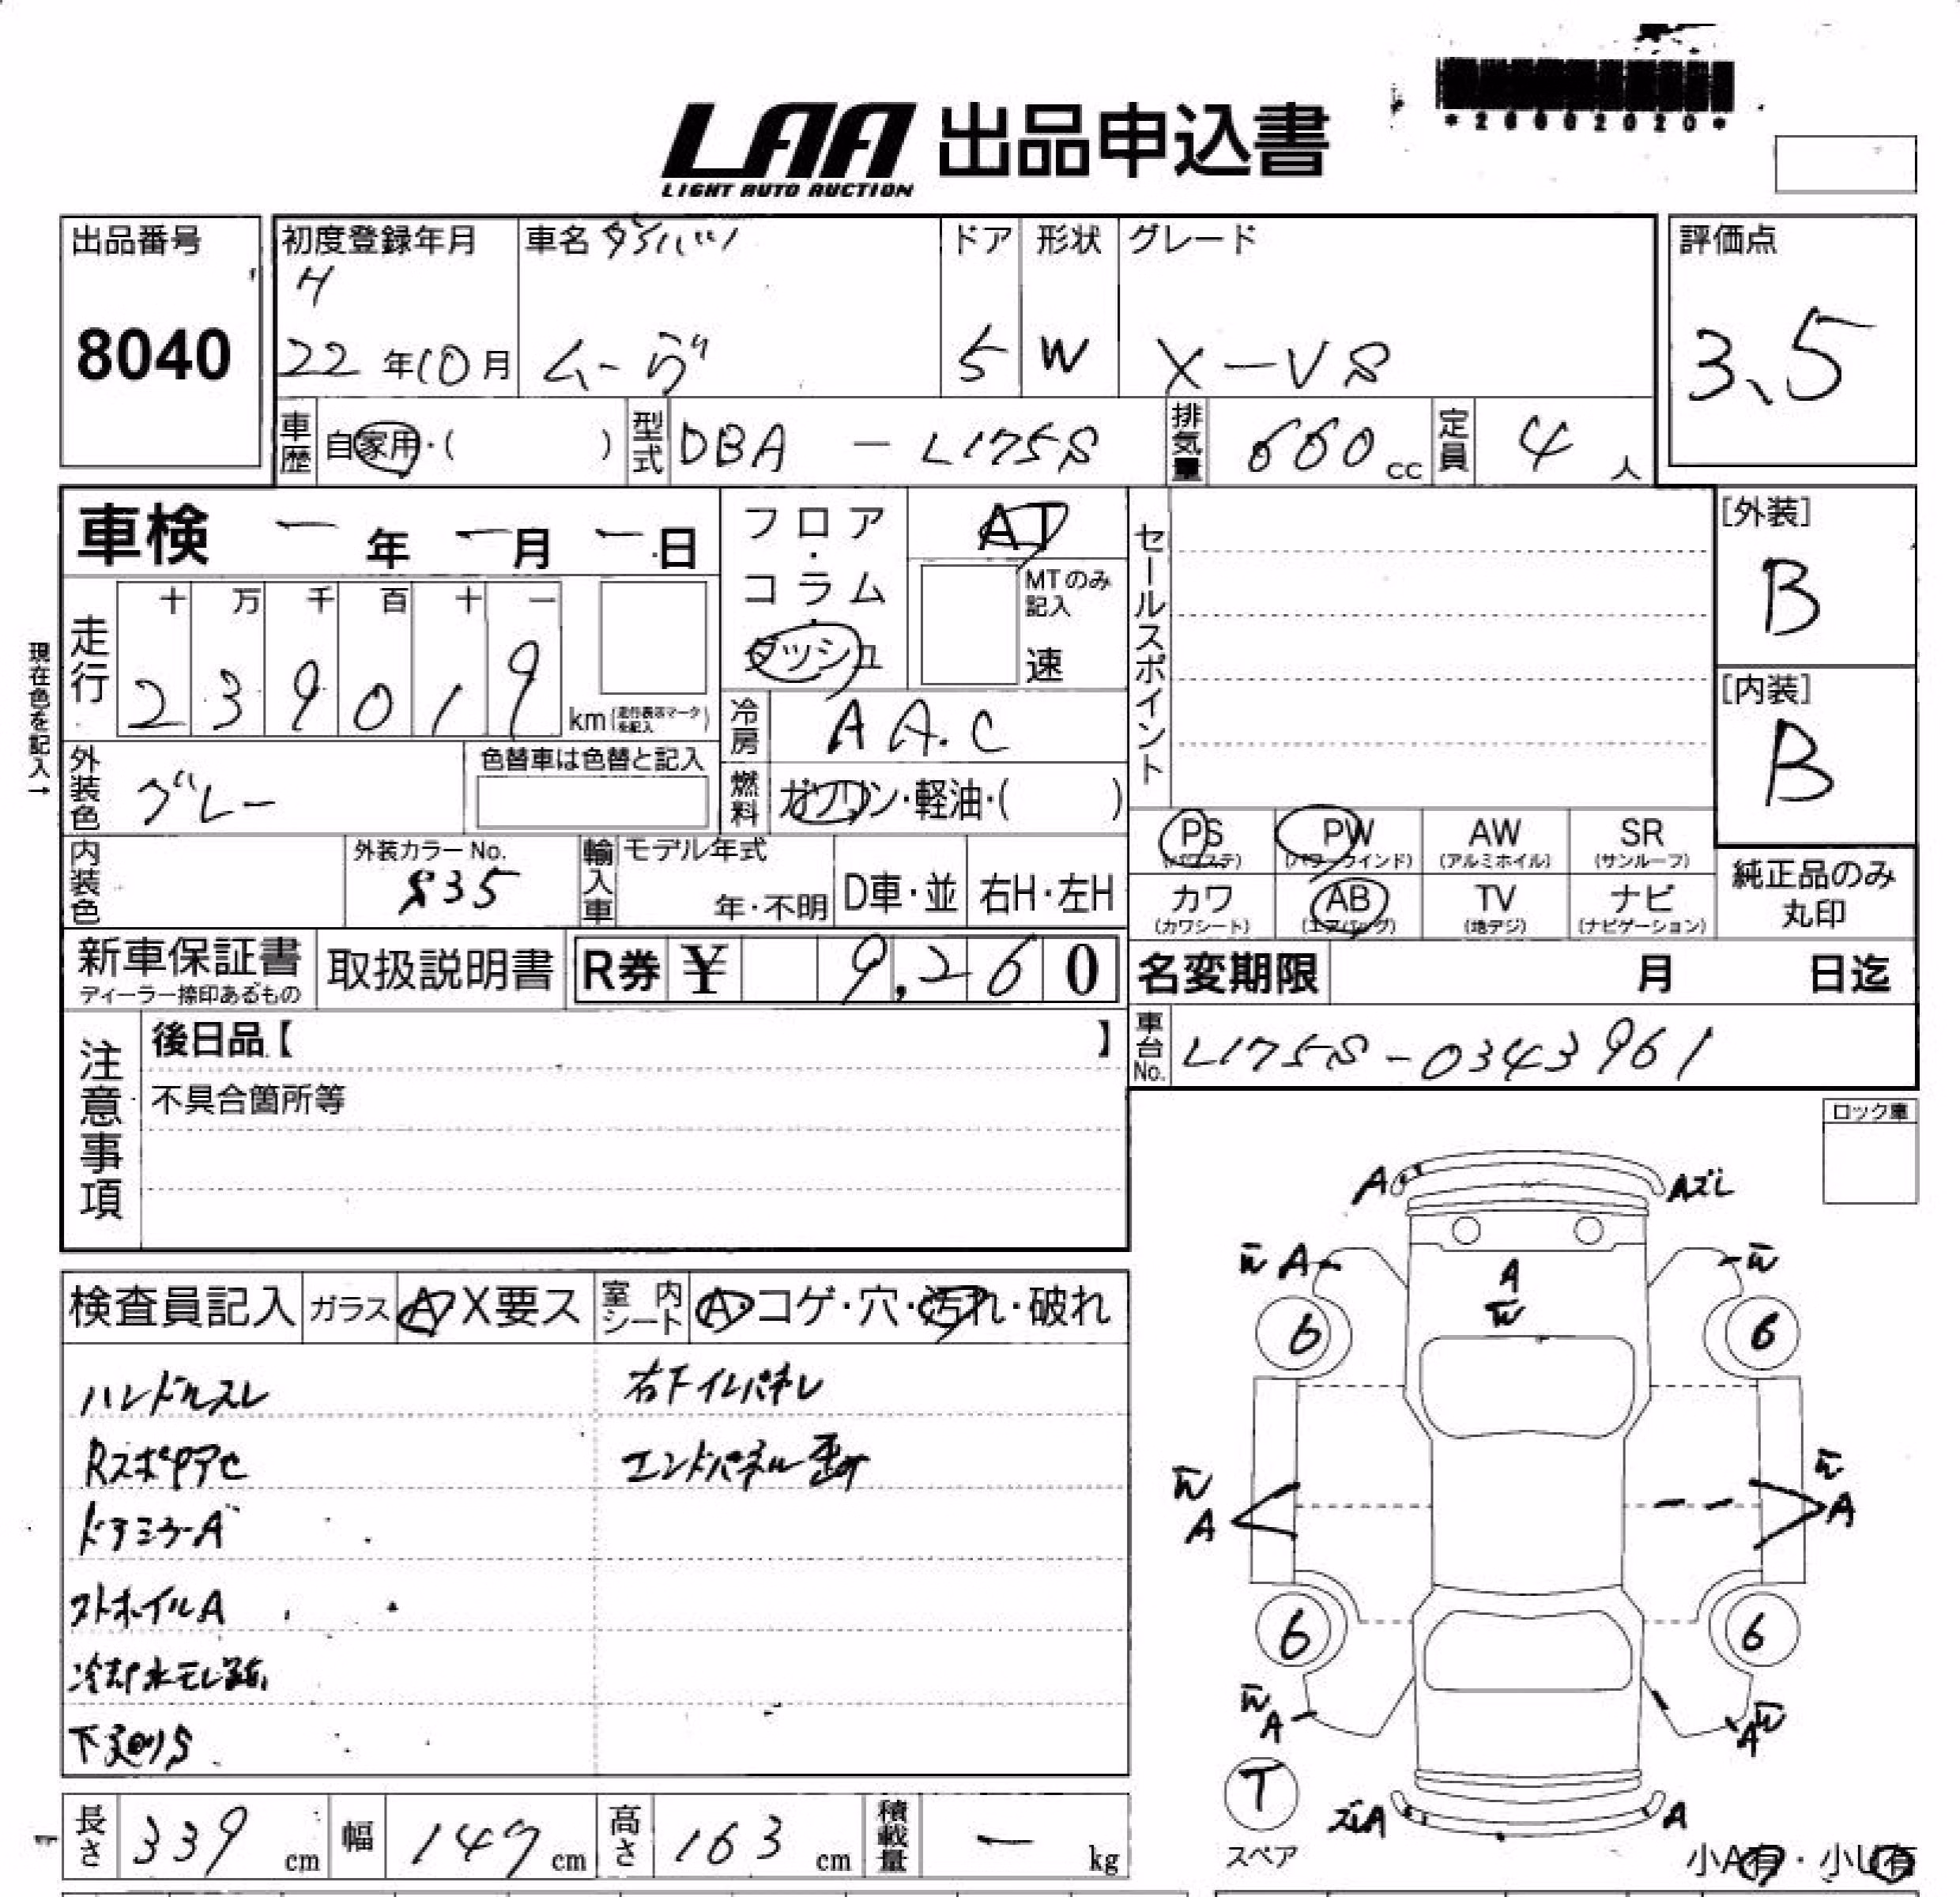 *26002020*
LAA 出品申込書
LIGHT AUTO AUCTION
出品番号
8040
初度登録年月
H
22年10月
車名 ダイハツ
ムーヴ
ドア
5
形状
W
グレード
X-VS
評価点
3.5
車歴 自家用・( )
型式 DBA - L175S
排気量 660cc
定員 4人
車検 ー年 ー月 ー日
フロア・コラム・ダッシュ
AT
MTのみ記入
速
セールスポイント
[外装]
B
[内装]
B
現在色を記入→
走行
十 万 千 百 十 一
2 3 9 0 1 9 km (走行表示マークを記入)
冷房 AA.C
外装色 グレー
色替車は色替と記入
燃料 ガソリン・軽油・( )
PS (パワステ)
PW (パワーウインド)
AW (アルミホイル)
SR (サンルーフ)
内装色
外装カラーNo.
S35
輸入車 モデル年式
年・不明
D車・並
右H・左H
カワ (カワシート)
AB (エアバッグ)
TV (地デジ)
ナビ (ナビゲーション)
純正品のみ
丸印
新車保証書
ディーラー捺印あるもの
取扱説明書
R券 ¥ 9,260
名変期限 月 日迄
注意事項
後日品【 】
不具合箇所等
車台No. L175S-0343961
ロック車
検査員記入
ガラス A X要ス
室内シート A・コゲ・穴・汚れ・破れ
ハンドルスレ
右テイルパネル
Rスポイアセ
ドアミラーA
ストホイルA
冷却水モレ跡
下廻りS
A
Aズレ
W A
W
A
W
6
6
W
A
W
A
6
6
W
A
A W
T
スペア
ズレA
A
小A有・小U有
長さ 339 cm
幅 147 cm
高さ 163 cm
積載量 ー kg